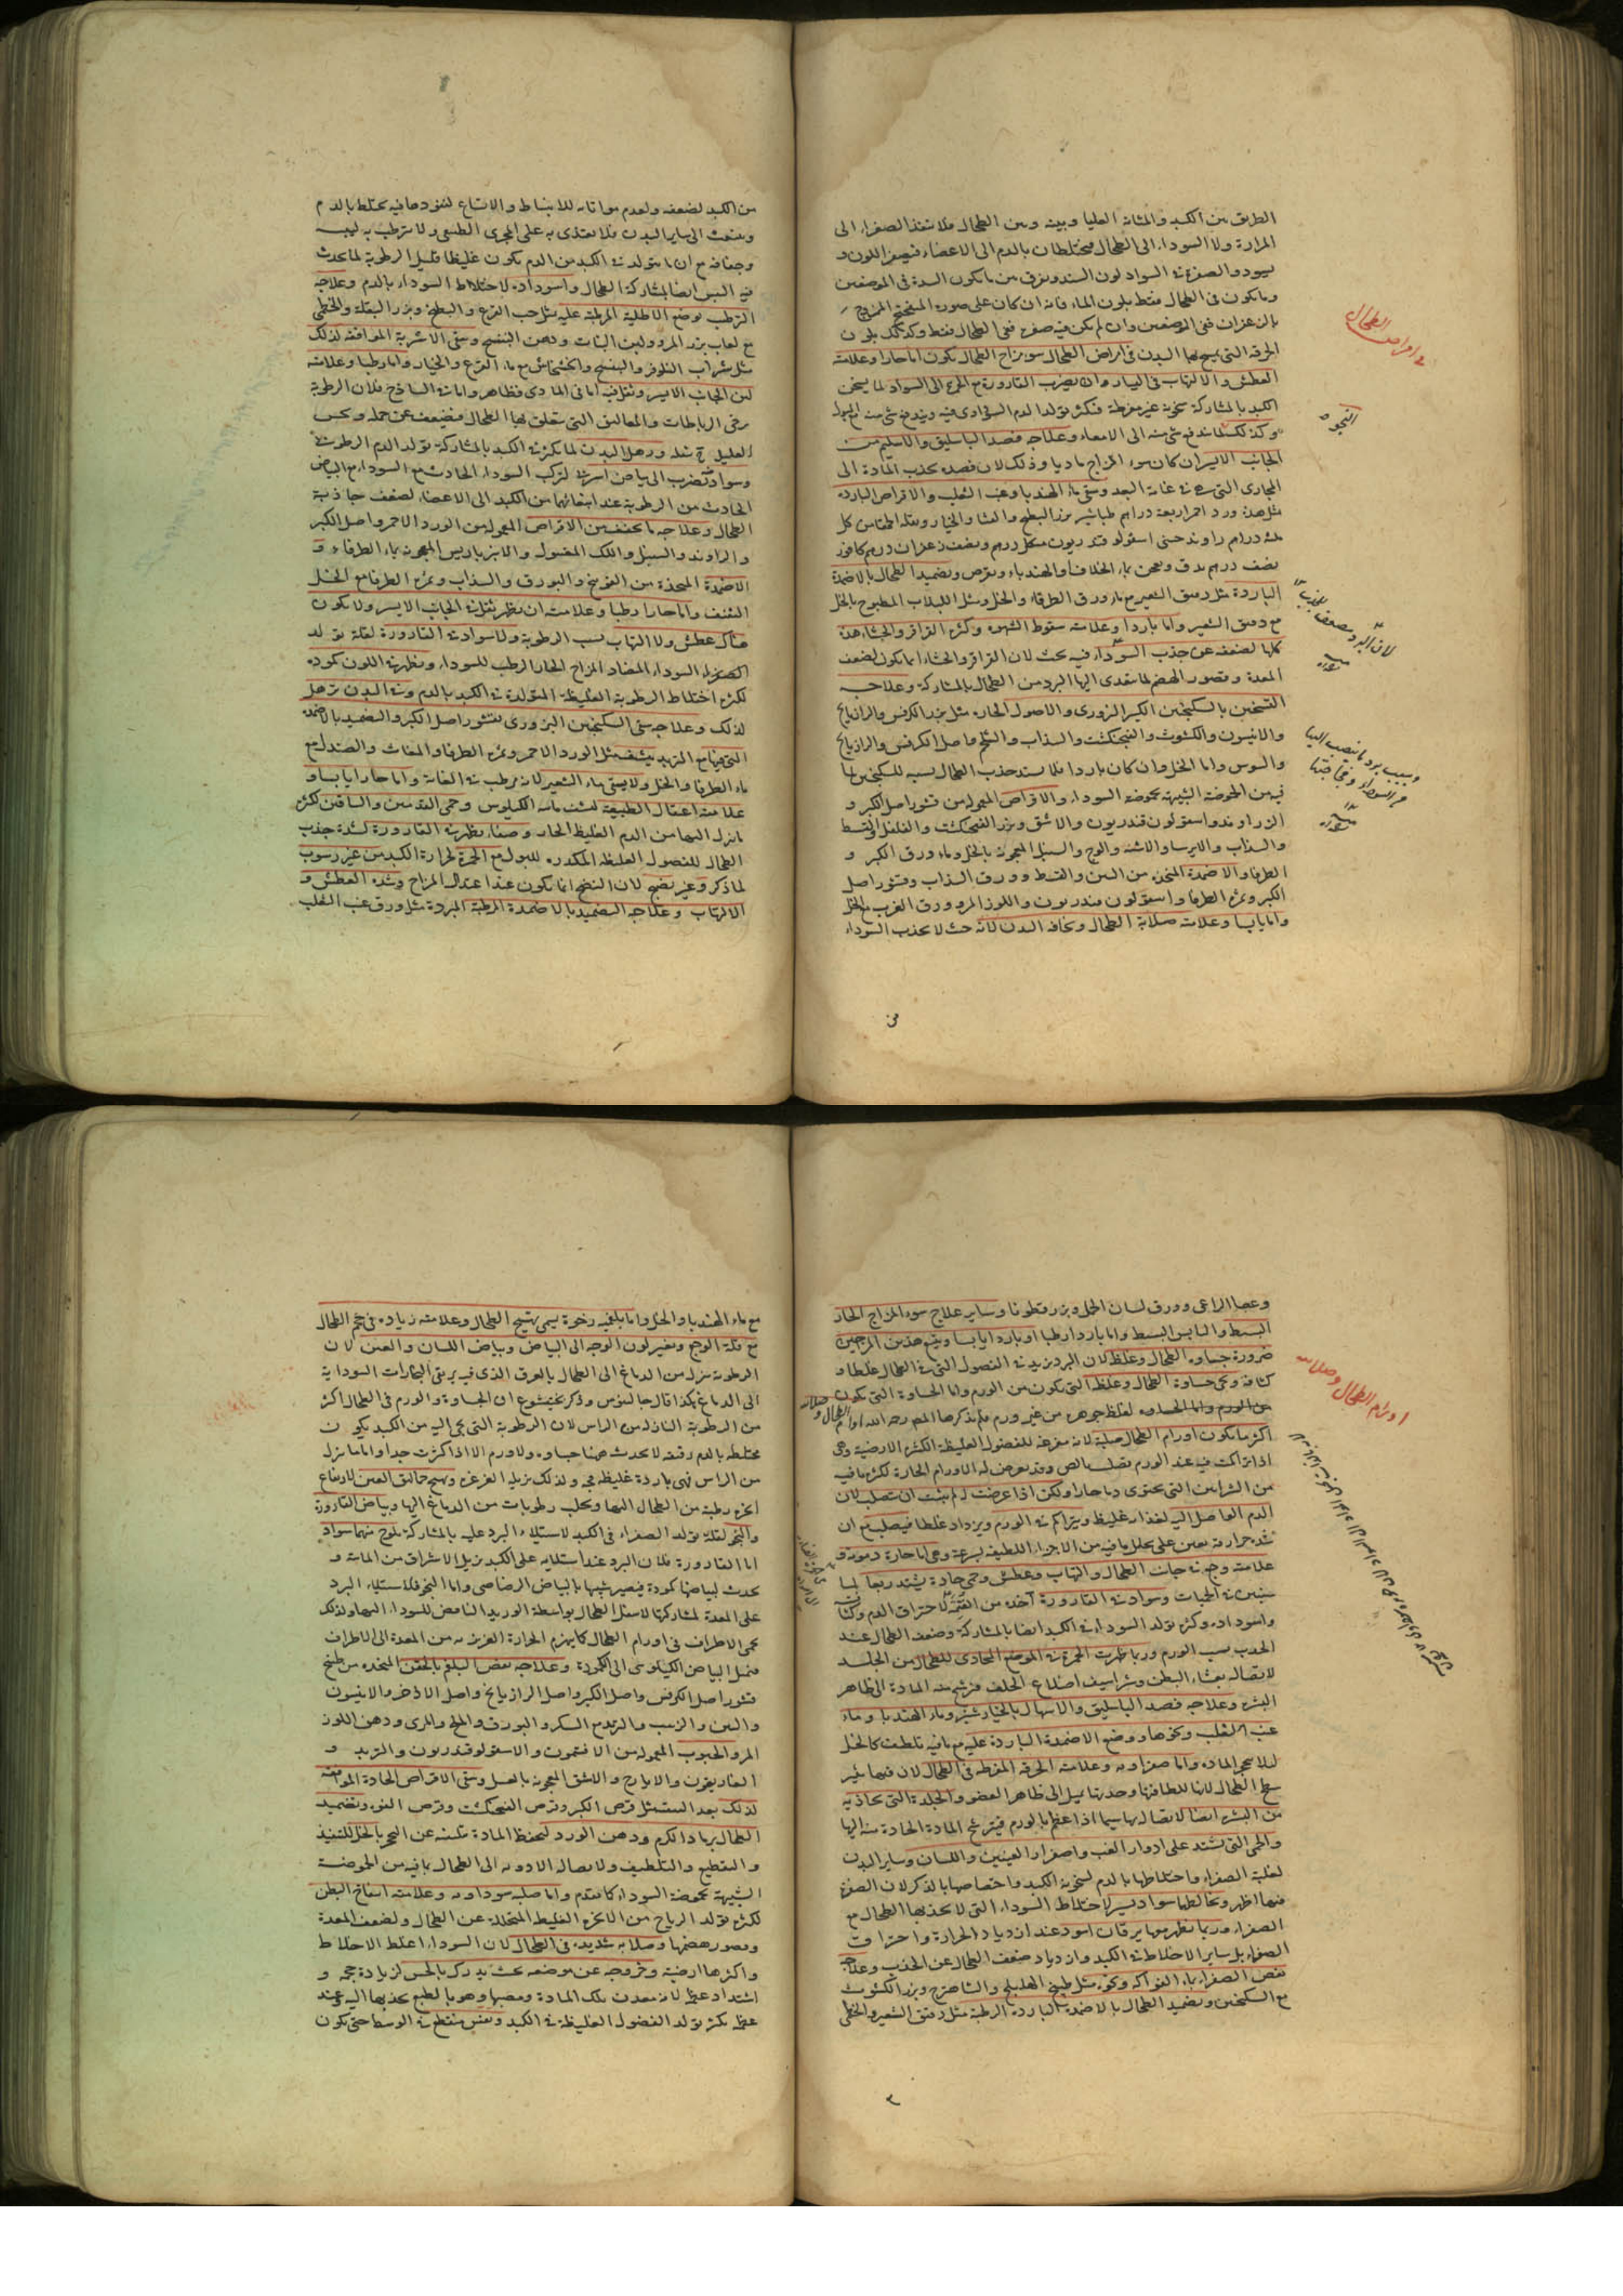 الطريق بين الكبد والمثانة العليا وبينه وبين الطحال فلا تنفذ الصفراء الى
المرارة ولا السوداء الى الطحال فيختلطان بالدم الى الاعضاء فيصفر اللون و
يسود والصفرة والسواد لون السدد ويفرق بين ما يكون السدة في الموضعين
وما يكون في الطحال فقط بلون الماء فانه ان كان على صورة
بالزعفران ففي الموضعين وان لم يكن فيه صفرة ففي الطحال فقط وكذلك بلون
الخرقة التي يمسح بها البدن في امراض الطحال سوء مزاج الطحال يكون اما حارا وعلامته
العطش والالتهاب في اليسار وان يضرب القارورة مع الحمرة الى السواد لما يسخن
الكبد بالمشاركة سخونة غير مفرطة فيكثر تولد الدم السوداوي فيه ويندفع شيء منه مع البول
وكذلك لما يندفع شيء منه الى الامعاء وعلاجه فصد الباسليق والاسيلم من
الجانب الايسر ان كان سوء المزاج ماديا وذلك لان فصده يجذب المادة الى
المجاري التي هي في غاية البعد وسقي ماء الهندبا وعنب الثعلب والاقراص الباردة
مثل هذه ورد احمر اربعة دراهم طباشير بزر البطيخ والقثا والخيار وبقلة الحمقا من كل
ثلثة دراهم راوند صيني اسقولوقندريون من كل درهم ونصف زعفران درهم كافور
نصف درهم يدق ويعجن بماء الخلاف والهندباء ويقرص وتضميد الطحال بالاضمدة
الباردة مثل دقيق الشعير مع ماء ورق الطرفاء والخل ومثل اللبلاب المطبوخ بالخل
مع دقيق الشعير واما باردا وعلامته سقوط الشهوة وكثرة القراقر والجشاء هذه
كلها لضعفه عن جذب السوداء فيه بحث لان القراقر والجشاء انما يكون لضعف
المعدة وقصور الهضم لما يتعدى اليها البرد من الطحال بالمشاركة وعلاجه
التسخين بالسكنجبين الكبير البزوري والاصول الحارة مثل بزر الكرفس والرازيانج
والانيسون والكشوث والفنجنكشت والسذاب والشلجم واصل الكرفس والرازيانج
والسوس واما الخل وان كان باردا فلا يستدعيه الطحال لسبب السكنجبين لما
فيه من الحموضة الشبيهة بحموضة السوداء والاقراص المعمولة من قشور اصل الكبر و
الزراوند واسقولوقندريون والاشق وبزر الفنجنكشت والفلفل والقسط
والسذاب والايرسا والاشنة والوج والسنبل المعجونة بالخل وماء ورق الكبر و
الطرفا والاضمدة المتخذة من التين والقسط وورق السذاب وقشور اصل
الكبر وثمرة الطرفا واسقولوقندريون واللوز المر وورق الغرب مع الخل
واما يابسا وعلامته صلابة الطحال ونحافة البدن لانه حينئذ لا يجذب السوداء
من
في امراض الطحال
من الكبد لضعفه ولعدم مواتاته للانبساط والاتساع لنفوذها فيه يختلط بالدم
وينبعث الى سائر البدن فلا يغتذي به على المجرى الطبيعي ولا يترطب به ليبسه
وجفافه مع ان ما يتولد في الكبد من الدم يكون غليظا قليل الرطوبة لما يحدث
فيه اليبس ايضا لمشاركة الطحال واسوداده لاختلاط السوداء بالدم وعلاجه
الترطيب بوضع الاطلية المرطبة عليه مثل حب القرع والبطيخ وبزر البقلة والخطمي
مع لعاب بزر المرو ولبن البنات ودهن البنفسج وسقي الاشربة الموافقة لذلك
مثل شراب النلوفر والبنفسج والخشخاش مع ماء القرع والخيار واما رطبا وعلامته
لين الجانب الايسر وثقل فيه اما في المادي فظاهر واما في الساذج فلان الرطوبة
ترخى الرباطات والمعاليق التي يتعلق بها الطحال فيضعف عن حمله ويحس
العليل بثقله ورهل البدن لما يكثر في الكبد بالمشاركة تولد الدم الرطوبي
وسواد يضرب الى بياض لتركب السوداء الحادث مع السوداء مع البياض
الحادث من الرطوبة عند انبعاثهما من الكبد الى الاعضاء لضعف جاذبة
الطحال وعلاجه ما يجفف من الاقراص المعمولة من الورد الاحمر واصل الكبر
والراوند والسنبل واللك المغسول والانبرباريس المعجونة بماء الطرفاء و
الاضمدة المتخذة من الفوتنج والبورق والسذاب وثمرة الطرفا مع الخل
الثقيف واما حارا رطبا وعلامته ان يظهر ثقل في الجانب الايسر ولا يكون
هناك عطش ولا التهاب بسبب الرطوبة ولا سواد في القارورة لقلة تولد
السوداء المضاد المزاج الحار الرطب للسوداء ويظهر في اللون كمودة
لكثرة اختلاط الرطوبة الغليظة المتولدة في الكبد بالدم وفي البدن ترهل
لذلك وعلاجه سقي السكنجبين البزوري بقشور اصل الكبر والتضميد بالاضمدة
التي فيها مع التبريد ينشف مثل الورد الاحمر وثمرة الطرفا والمغاث والصندل مع
ماء الطرفا والخل ولا يسقى ماء الشعير لانه يرطب في الغاية واما حارا يابسا و
علامته اعتقال الطبيعة لنشف مائية الكيلوس وحمى القدمين والساقين لكثرة
ما ينزل اليهما من الدم الغليظ الحار وصفاء يظهر في القارورة لشدة جذب
الطحال للفضول الغليظة المكدرة للبول مع الحمرة لحرارة الكبد من غير رسوب
لما ذكر وغير نضيج لان النضج انما يكون عند اعتدال المزاج وشدة العطش و
الالتهاب وعلاجه التضميد بالاضمدة الرطبة المبردة مثل ورق عنب الثعلب
وعصا الراعي وورق لسان الحمل وبزر قطونا وسائر علاج سوء المزاج الحار
البسيط واليابس البسيط واما باردا رطبا او باردا يابسا ويتبع هذين المزاجين
ضرورة جساوة الطحال وغلظه لان البرد يزيد في الفضول التي في الطحال غلظا و
كثافة وهي جساوة الطحال وغلظه التي يكون من الورم واما الجساوة التي يكون
لغلظ جوهره من غير ورم فلم يذكرها المص رحمه الله اورام الطحال وصلابته
اكثر ما يكون اورام الطحال صلبة لانه مفرغة للفضول الغليظة الكثيرة الارضية وهي
اذا تراكمت فيه عند الورم تصلب بالصواب وقد يعرض له الاورام الحارة لكثرة ما فيه
من الشرايين التي يحتوي دما حارا ولكن اذا عرضت له لم يثبت ان تصلب لان
الدم الواصل اليه لغذاء غليظ ويتراكم في الورم ويزداد غلظا فيصلب مع ان
شدة حرارته يعين على تحليل ما فيه من الاجزاء اللطيفة بسرعة وهي اما حارة دموية و
علامته وجع في جانب الطحال والتهاب وعطش وحمى حادة يشتد ربعا لما
سنبين في الحميات وسواد في القارورة لاحتراق الدم
واسوداده وكثرة تولد السوداء في الكبد ايضا بالمشاركة وضعف الطحال عند
الجذب بسبب الورم وربما ظهرت الحمرة في الموضع المحاذي للطحال من الجلد
لاتصاله بغشاء البطن وشراسيف اضلاع الخلف فيرشح منه المادة الى ظاهر
البشرة وعلاجه فصد الباسليق والاسهال بالخيار شنبر وماء الهندبا وماء
عنب الثعلب ونحوها ووضع الاضمدة الباردة عليه مع ما فيه تلطيف كالخل
لئلا يتحجر المادة واما صفراوية وعلامته الحرقة المفرطة في الطحال لان
الطحال لانها للطافتها وحدتها تميل الى ظاهر العضو والجلدة التي تحاذيه
من البشرة ايضا لاتصاله بها سيما اذا عظم بالورم فيترشح المادة الحادة منه اليها
والحمى التي تشتد على ادوار الغب واصفرار العينين واللسان وسائر البدن
لغلبة الصفراء واختلاطها بالدم لسخونة الكبد واختصاصها بالذكر لان الصفرة
فيهما اظهر ويخالطها سواد يسير لاختلاط السوداء التي لا يجذبها الطحال مع
الصفراء وربما يظهر منها يرقان اسود عند ازدياد الحرارة واحتراق
الصفراء بل سائر الاخلاط في الكبد وازدياد ضعف الطحال عن الجذب وعلاجه
نقص الصفراء بماء الفواكه ونحوه مثل طبيخ الهليلج والشاهترج وبزر الكشوث
مع السكنجبين وتضميد الطحال بالاضمدة الباردة الرطبة مثل دقيق الشعير والخطمي
اورام الطحال وصلابته
مع ماء الهندبا والخل واما بلغمية رخوة يسمى تهبج الطحال وعلامته زيادة في حجم الطحال
مع قلة الوجع وتغير لون الوجه الى البياض وبياض اللسان والعين لان
الرطوبة تنزل من الدماغ الى الطحال بالعرق الذي فيه يرتقي البخارات السوداوية
الى الدماغ هكذا قال جالينوس وذكر بختيشوع ان الجساوة والورم في الطحال اكثر
من الرطوبة النازلة من الراس لان الرطوبة التي تجي اليه من الكبد يكون
مختلطة بالدم رقيقة لا يحدث عنها جساوة ولا ورم الا اذا كثرت جدا واما ما نزل
من الراس فهي باردة غليظة فجة ولذلك يزيله الغرغرة وتهيج جفاني العين لارتفاع
ابخرة رطبة من الطحال اليها ويجلب رطوبات من الدماغ اليها وبياض القارورة
والنجو لقلة تولد الصفراء في الكبد لاستيلاء البرد عليه بالمشاركة يلوح منهما سواد
اما القارورة فلان البرد عند استيلائه على الكبد يزيل الاشراق من المائية و
يحدث لبياضها كمودة فيصير شبيها بالبياض الرصاصي واما النجو فلاستيلاء البرد
على المعدة لمشاركتها لاسفل الطحال بواسطة الوريد النافض للسوداء اليها ولذلك
يحمى الاطراف في اورام الطحال كما ينهزم الحرارة الغريزية من المعدة الى الاطراف
فيميل البياض الكيلوسي الى الكمودة وعلاجه نفض البلغم بالحقن المتخذة من طبيخ
قشور اصل الكرفس واصل الكبر واصل الرازيانج واصل الاذخر والانيسون
والتين والزبيب والتربد مع السكر والبورق والملح والمرى ودهن اللوز
المر والحبوب المعمولة من الافتيمون والاسقولوقندريون والتربد و
الغاريقون والايارج والاشق المعجونة بالعسل وسقي الاقراص الحادة الموافقة
لذلك بعد مثل قرص الكبر وقرص الفنجنكشت وقرص الفوه وتضميد
الطحال برماد الكرم ودهن الورد لتحفظ المادة بلينه عن التحجر بالخل للتنفيذ
والتقطيع والتلطيف ولايصاله الادوية الى الطحال بما فيه من الحموضة
الشبيهة بحموضة السوداء كما تقدم واما صلبة سوداوية وعلامته انتفاخ البطن
لكثرة تولد الرياح من الابخرة الغليظ المتحللة عن الطحال ولضعف المعدة
وقصور هضمها وصلابة شديدة في الطحال لان السوداء اغلظ الاخلاط
واكثرها ارضية وخروجه عن موضعه بحيث يدرك بالحس لزيادة حجمه و
اشتداد عظمه لانه معدن تلك المادة ومصبها وهو بالطبع يجذبها اليه وعند
عظمه يكثر تولد الفضول الغليظة في الكبد وتنفس منقطع في الوسط حتى يكون